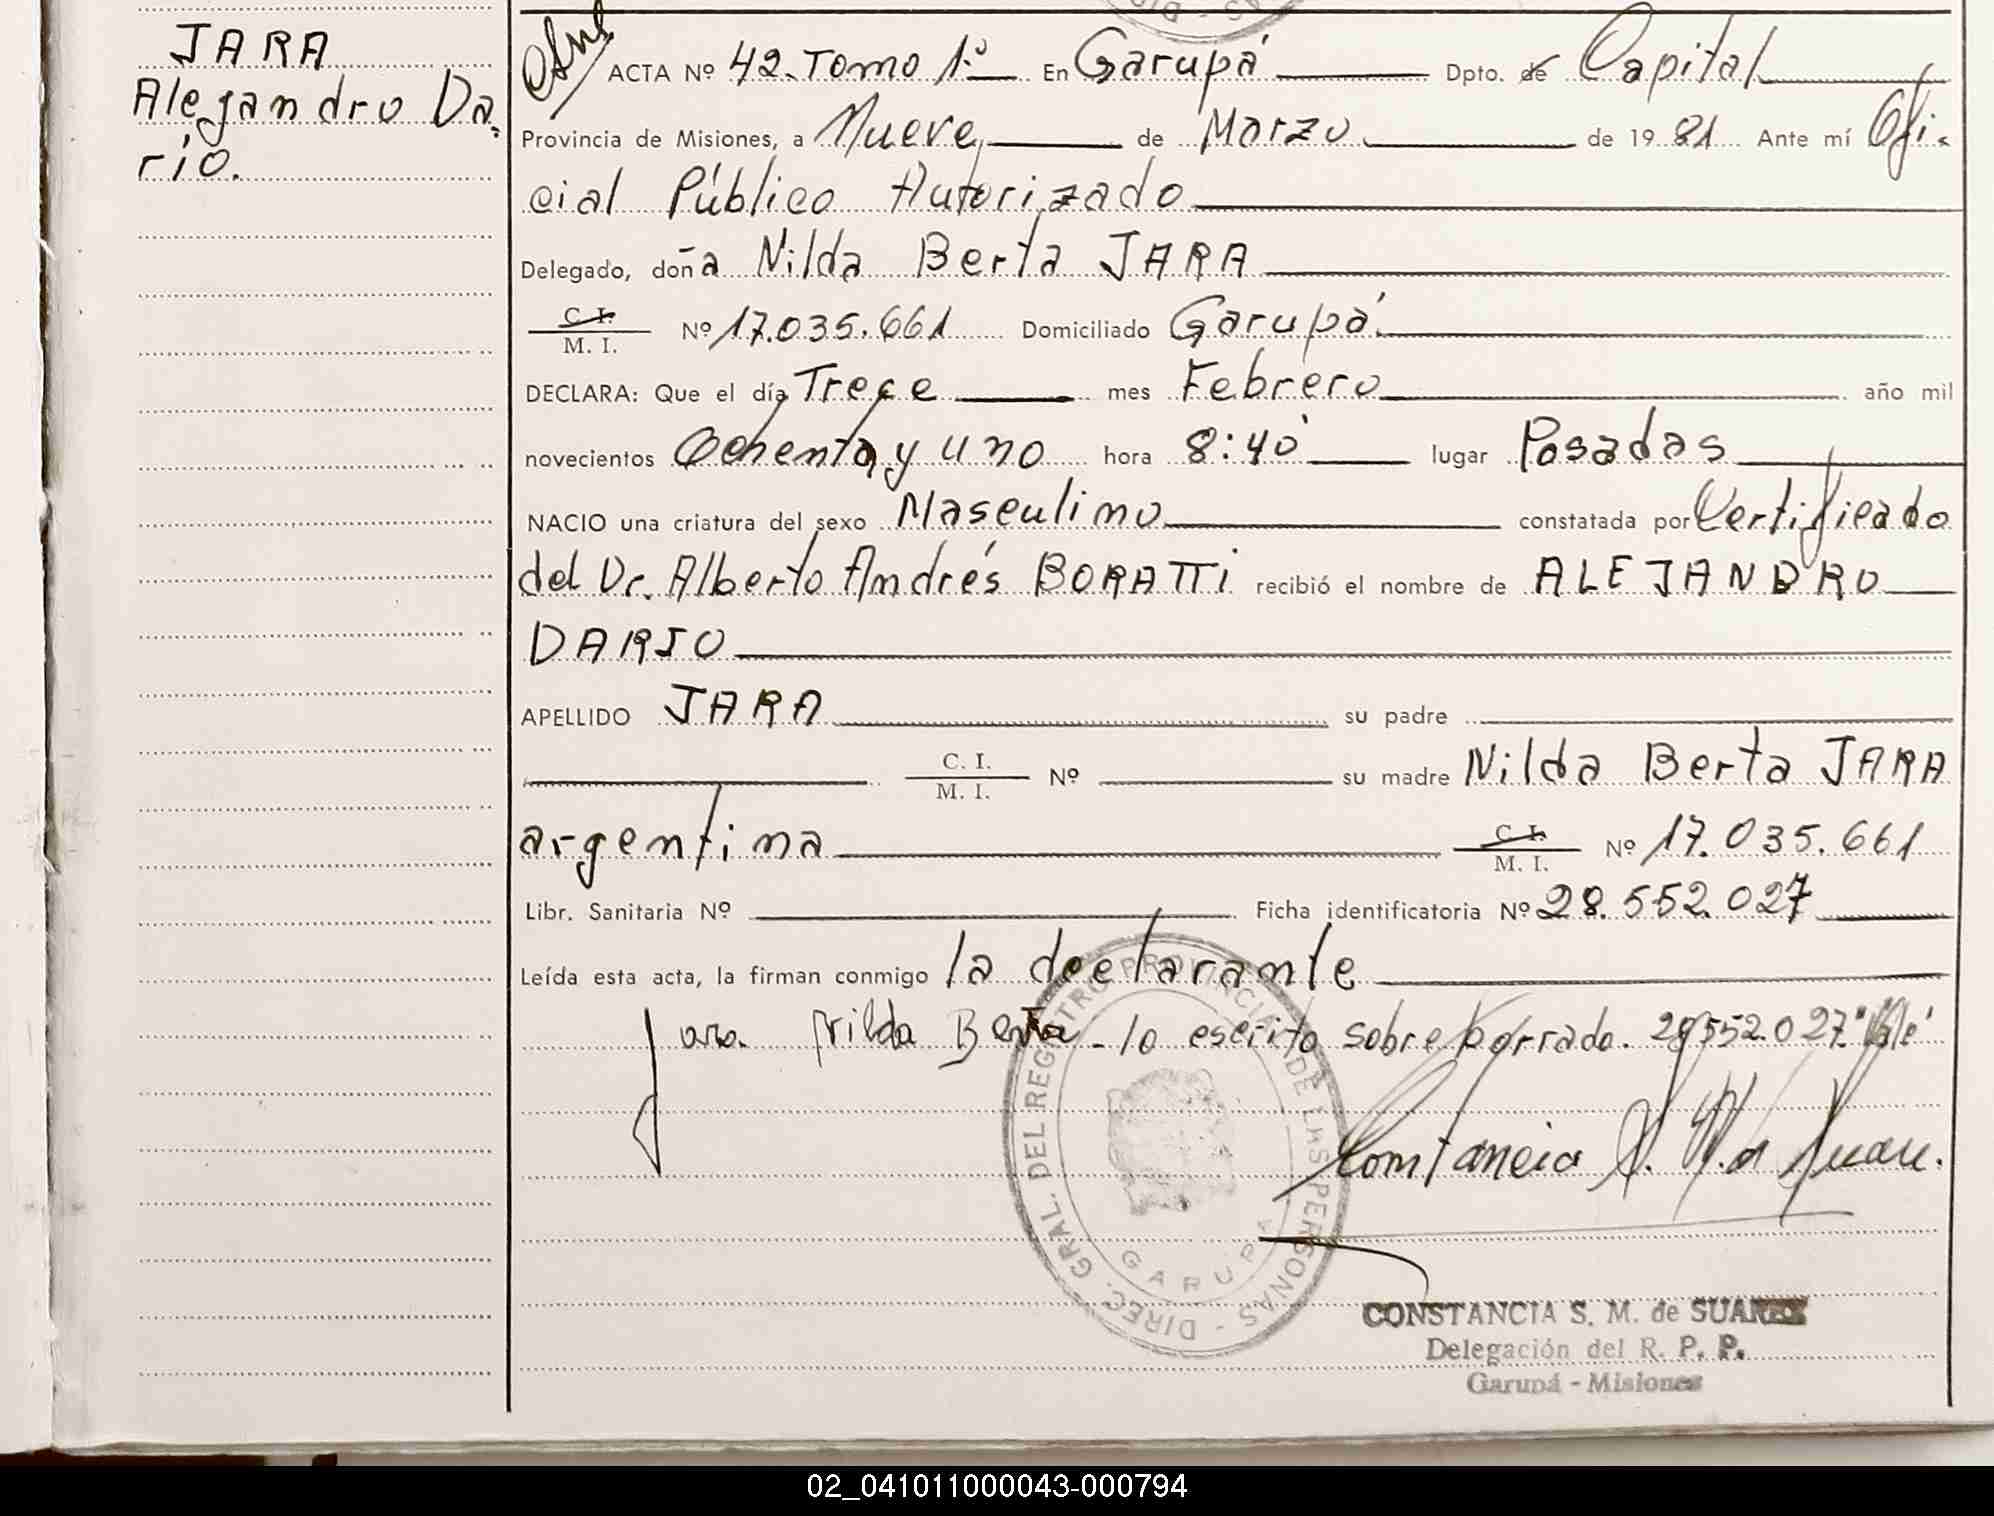 JARA
Alejandro Da-
rio.
ACTA Nº 42. Tomo 1º En Garupá Dpto. de Capital
Provincia de Misiones, a Nueve de Marzo de 1981 Ante mí Ofi-
cial Público Autorizado
Delegado, doña Nilda Berta JARA
C. I.
M. I. Nº 17.035.661 Domiciliado Garupá
DECLARA: Que el día Trece mes Febrero año mil
novecientos Ochenta y uno hora 8:40 lugar Posadas
NACIO una criatura del sexo Masculino constatada por Certificado
del Dr. Alberto Andrés BORATTI recibió el nombre de ALEJANDRO
DARIO
APELLIDO JARA su padre
C. I.
M. I. Nº su madre Nilda Berta JARA
argentina C. I.
M. I. Nº 17.035.661
Libr. Sanitaria Nº Ficha identificatoria Nº 28.552.027
Leída esta acta, la firman conmigo la declarante
Jara Nilda Berta - lo escrito sobre borrado. 28552.027." Vale"
Constancia S. M. de Suarez.
DIREC. GRAL. DEL REGISTRO PROVINCIAL DE LAS PERSONAS -
GARUPA
CONSTANCIA S. M. de SUAREZ
Delegación del R. P. P.
Garupá - Misiones
02_041011000043-000794